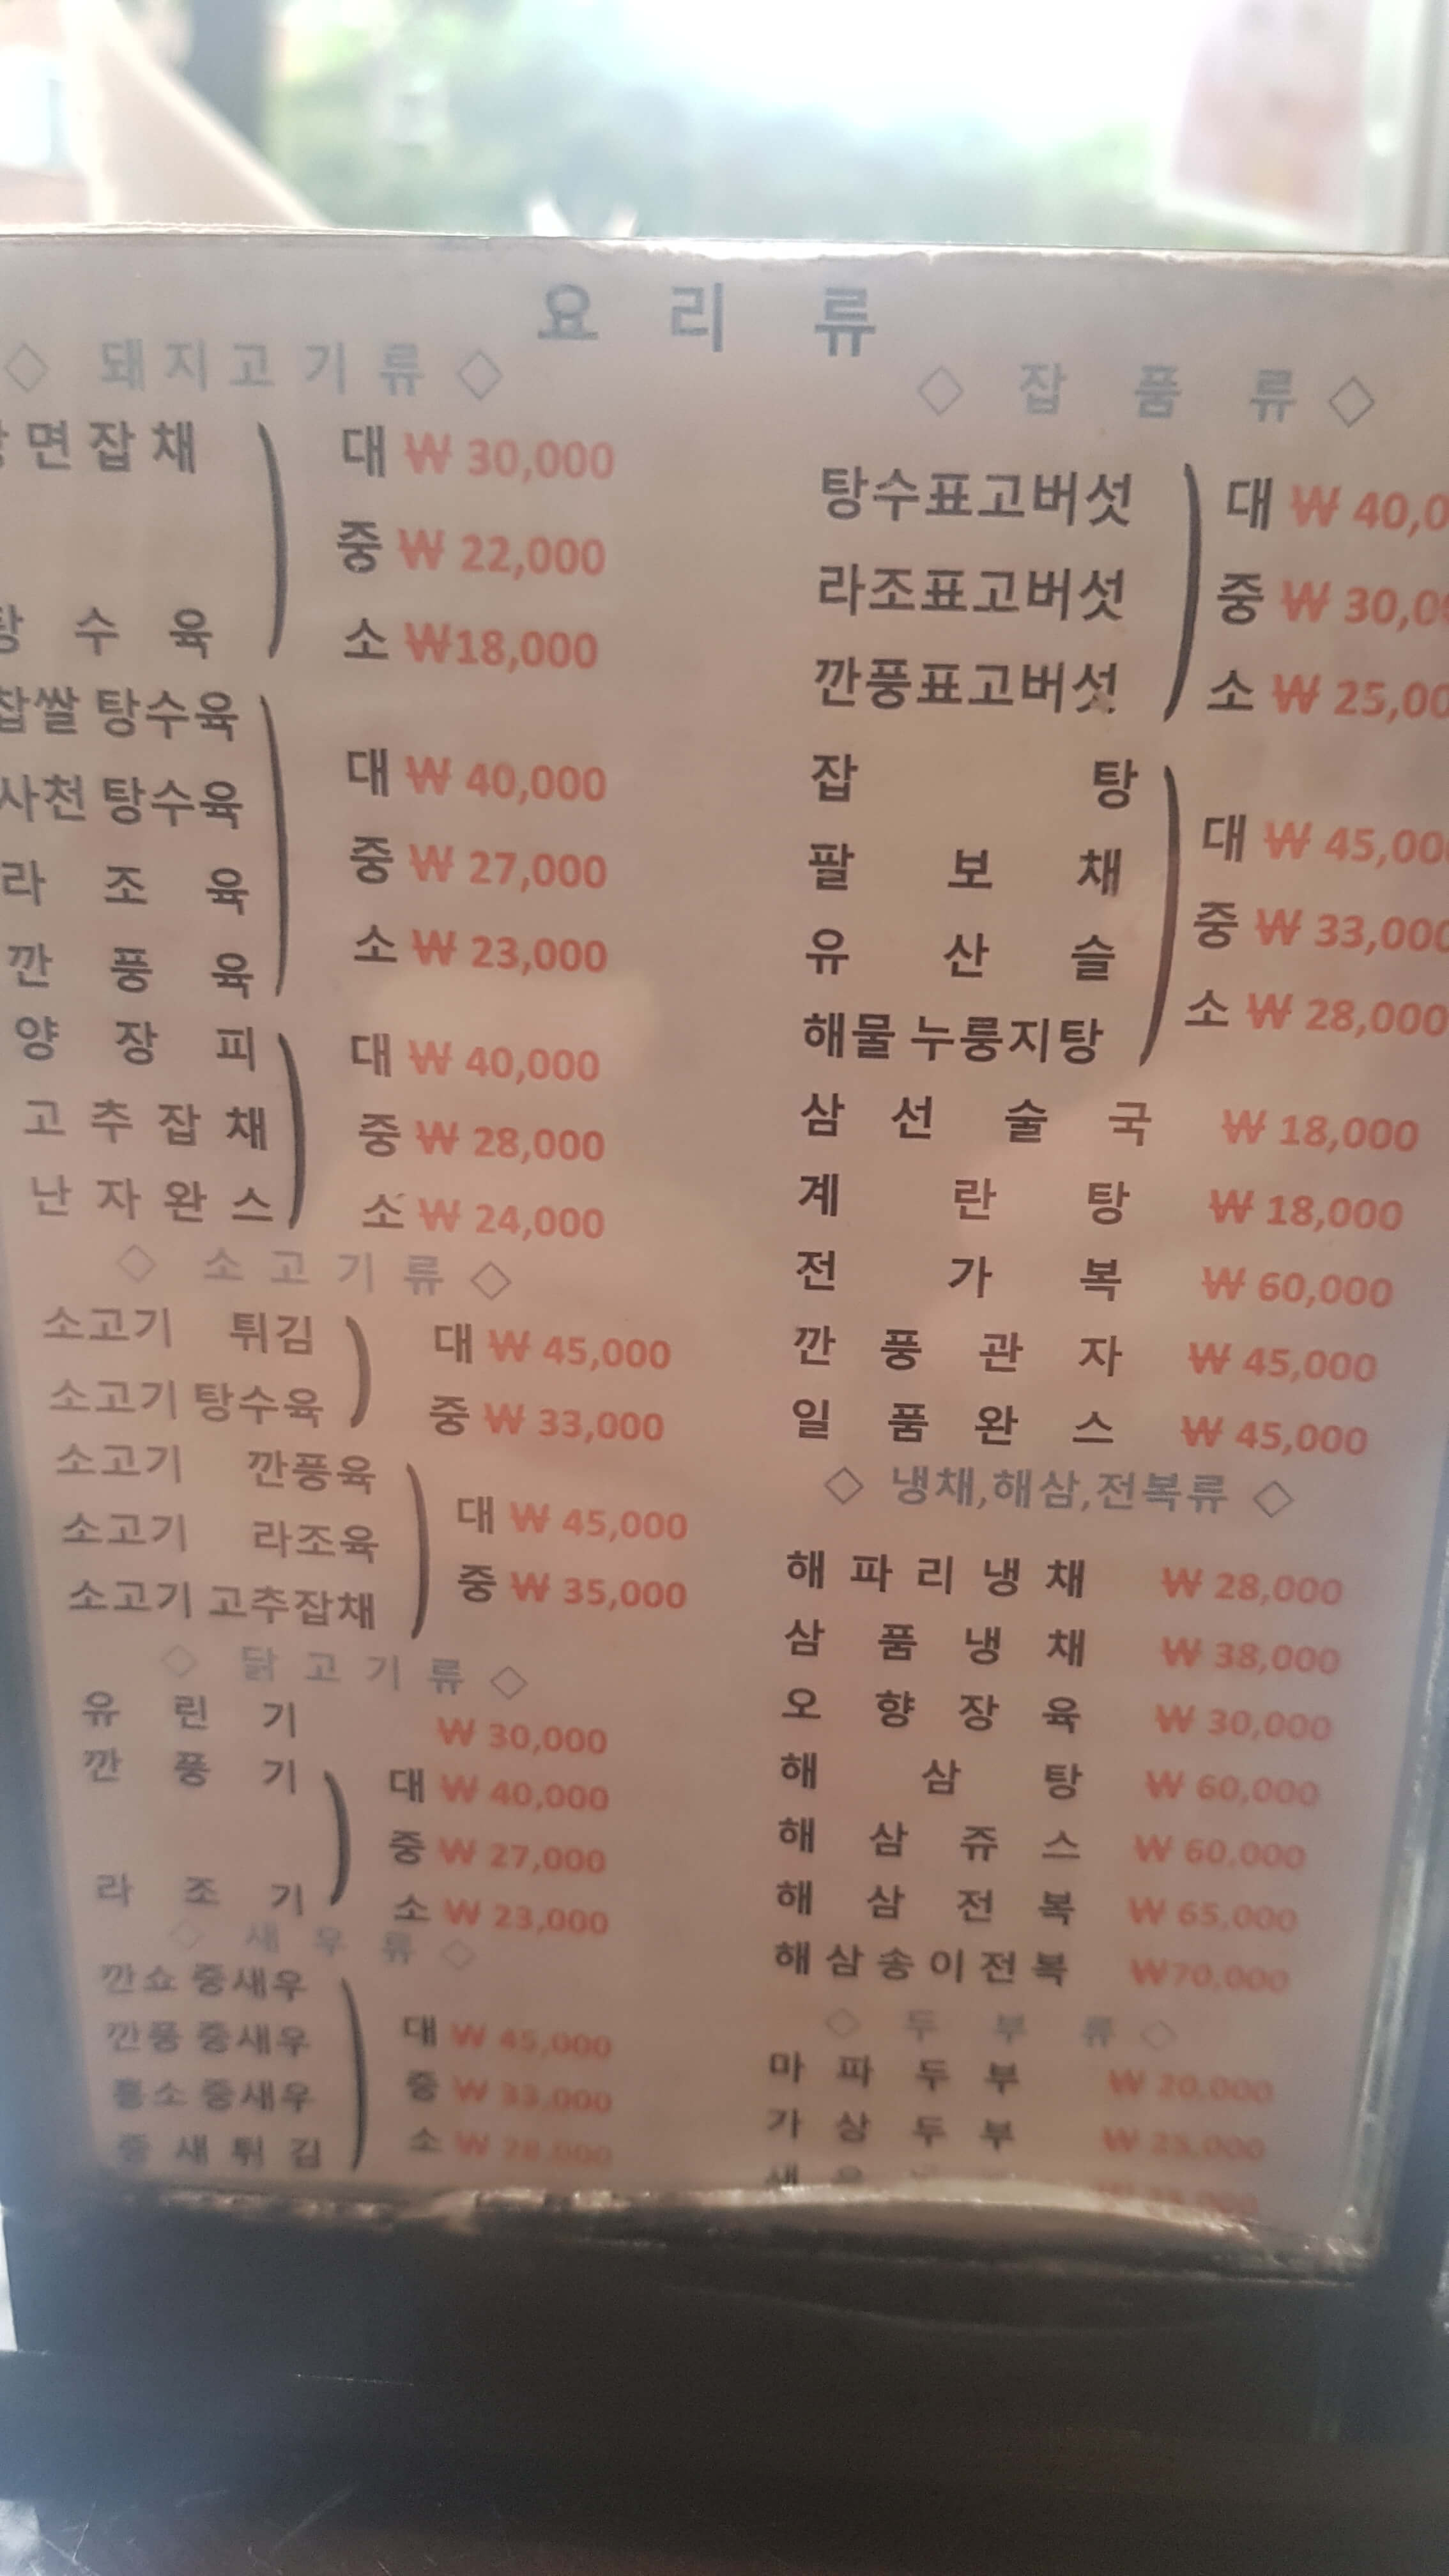 요 리 류
◇ 돼지고기류 ◇
면잡채
대 ₩ 30,000
중 ₩ 22,000
수 육
소 ₩18,000
찹쌀 탕수육
사천 탕수육
대 ₩ 40,000
라 조 육
중 ₩ 27,000
깐 풍 육
소 ₩ 23,000
양 장 피
대 ₩ 40,000
고 추 잡 채
중 ₩ 28,000
난 자 완 스
소 ₩ 24,000
◇ 소 고 기 류 ◇
소고기 튀김
대 ₩ 45,000
소고기 탕수육
중 ₩ 33,000
소고기 깐풍육
소고기 라조육
대 ₩ 45,000
소고기 고추잡채
중 ₩ 35,000
◇ 닭 고 기 류 ◇
유 린 기 ₩ 30,000
깐 풍 기
대 ₩ 40,000
중 ₩ 27,000
라 조 기
소 ₩ 23,000
◇ 새 우 류 ◇
깐쇼 중새우
깐풍 중새우
대 ₩ 45,000
홍소 중새우
중 ₩ 33,000
중 새 튀 김
소 ₩ 28,000
◇ 잡 품 류 ◇
탕수표고버섯
대 ₩ 40,0
라조표고버섯
중 ₩ 30,0
깐풍표고버섯
소 ₩ 25,00
잡 탕
대 ₩ 45,00
팔 보 채
중 ₩ 33,000
유 산 슬
소 ₩ 28,000
해물 누룽지탕
삼 선 술 국 ₩ 18,000
계 란 탕 ₩ 18,000
전 가 복 ₩ 60,000
깐 풍 관 자 ₩ 45,000
일 품 완 스 ₩ 45,000
◇ 냉채,해삼,전복류 ◇
해 파 리 냉 채 ₩ 28,000
삼 품 냉 채 ₩ 38,000
오 향 장 육 ₩ 30,000
해 삼 탕 ₩ 60,000
해 삼 쥬 스 ₩ 60,000
해 삼 전 복 ₩ 65,000
해 삼 송 이 전 복 ₩70,000
◇ 두 부 류 ◇
마 파 두 부 ₩ 20,000
가 상 두 부 ₩ 25,000